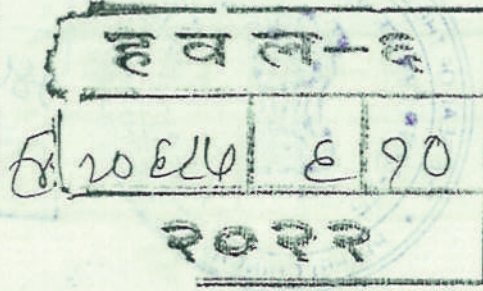 हवल-६
२०६८७ ६ १०
२०२२